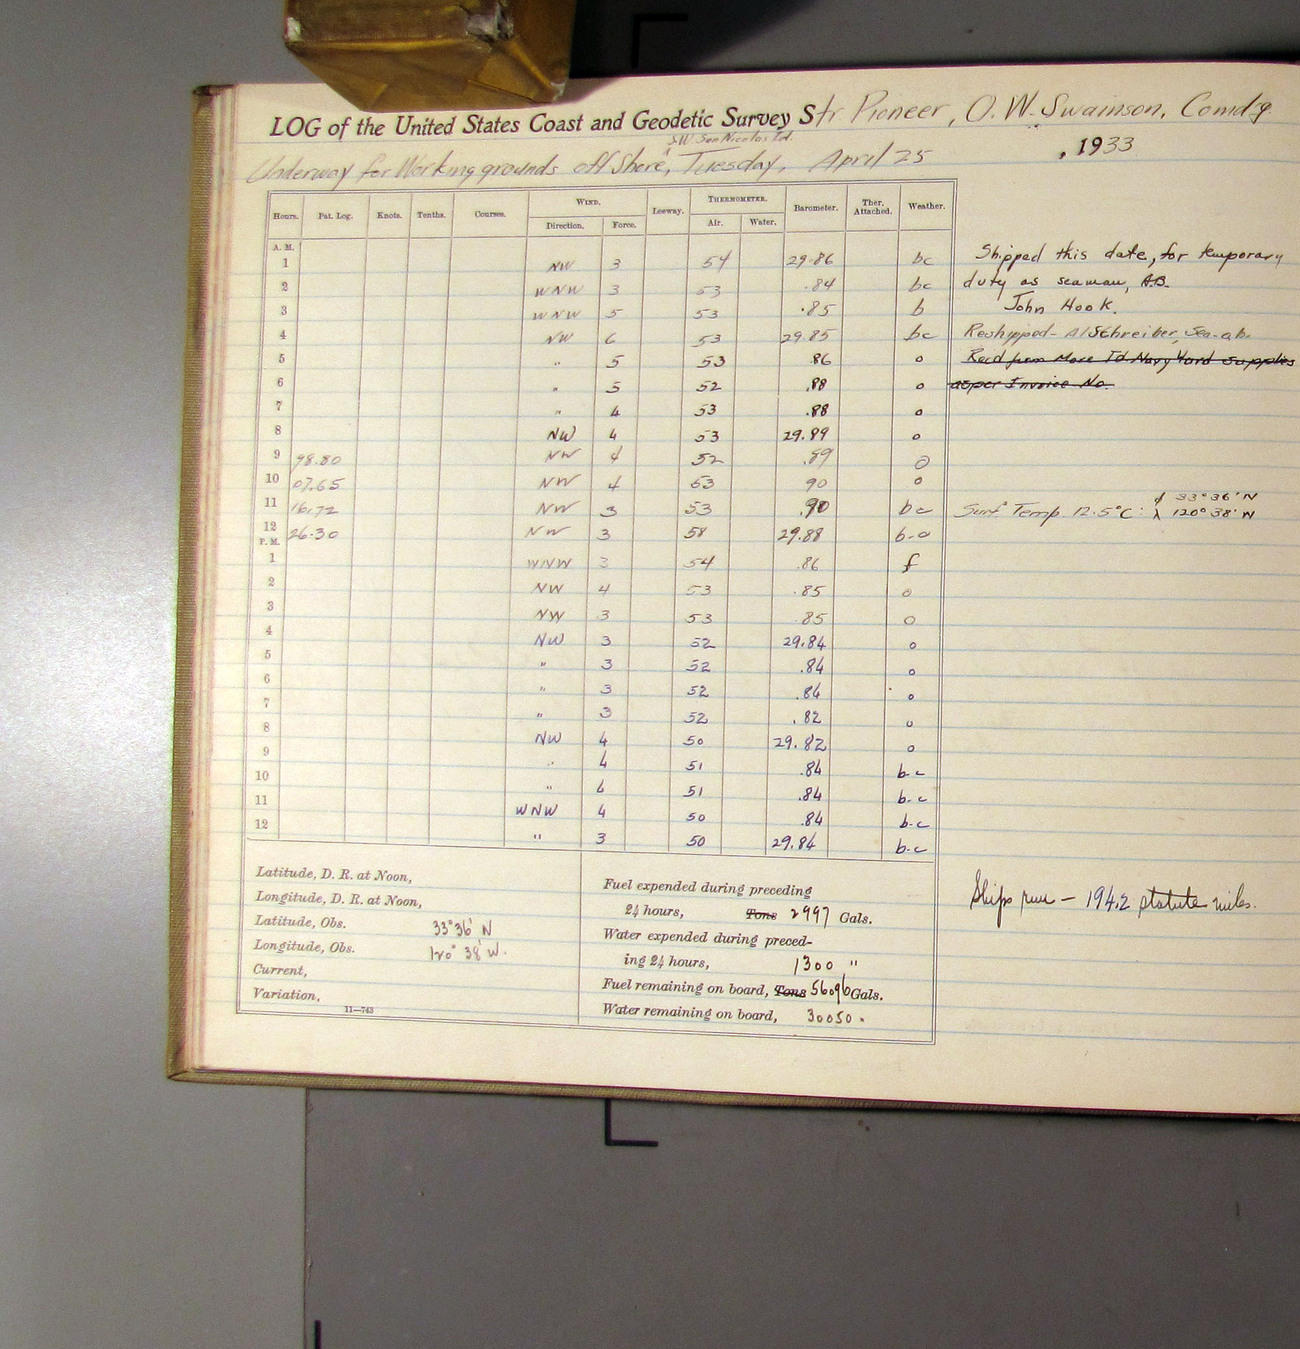 LOG of the United States Coast and Geodetic Survey Str Pioneer, O. W. Swainson, Comdg.
S.W. San Nicolas Id.
Underway for Working grounds off Shore, Tuesday, April 25, 1933
Hours. Pat. Log. Knots. Tenths. Courses. WIND. Leeway. THERMOMETER. Barometer. Ther. Attached. Weather.
Direction. Force. Air. Water.
A. M.
1 NW 3 54 29.86 bc Shipped this date, for temporary
2 WNW 3 53 .84 bc duty as seaman, A.B.
3 WNW 5 53 .85 b John Hook.
4 NW 6 53 29.85 bc Reshipped - Al Schreiber, Sea-ab.
5 " 5 53 .86 o Recd from Mare Id Navy Yard supplies
6 " 5 52 .88 o as per Invoice No.
7 " 4 53 .88 o
8 NW 4 53 29.89 o
9 98.80 NW 4 52 .89 o
10 07.65 NW 4 53 90 o
11 16.72 NW 3 53 .90 bc Surf. Temp. 12.5°C: φ 33°36'N
λ 120°38'W
12 26.30 NW 3 58 29.88 b-o
P. M.
1 WNW 3 54 .86 f
2 NW 4 53 .85 o
3 NW 3 53 .85 o
4 NW 3 52 29.84 o
5 " 3 52 .84 o
6 " 3 52 .84 o
7 " 3 52 .82 o
8 NW 4 50 29.82 o
9 " 4 51 .84 b-c
10 " 4 51 .84 b-c
11 WNW 4 50 .84 b-c
12 " 3 50 29.84 b-c
Latitude, D. R. at Noon,
Longitude, D. R. at Noon,
Latitude, Obs. 33°36' N
Longitude, Obs. 120° 38' W.
Current,
Variation,
11—743
Fuel expended during preceding
24 hours, Tons 2997 Gals.
Water expended during preced-
ing 24 hours, 1300 "
Fuel remaining on board, Tons 56096 Gals.
Water remaining on board, 30050.
Ships run — 194.2 statute miles.